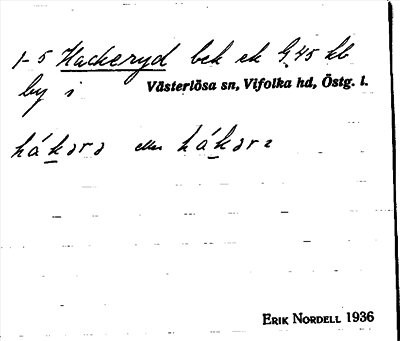 1-5 Hackeryd bek ek G.45 kb
by i Västerlösa sn, Vifolka hd, Östg. l.
hákərə eller hákərə
ERIK NORDELL 1936